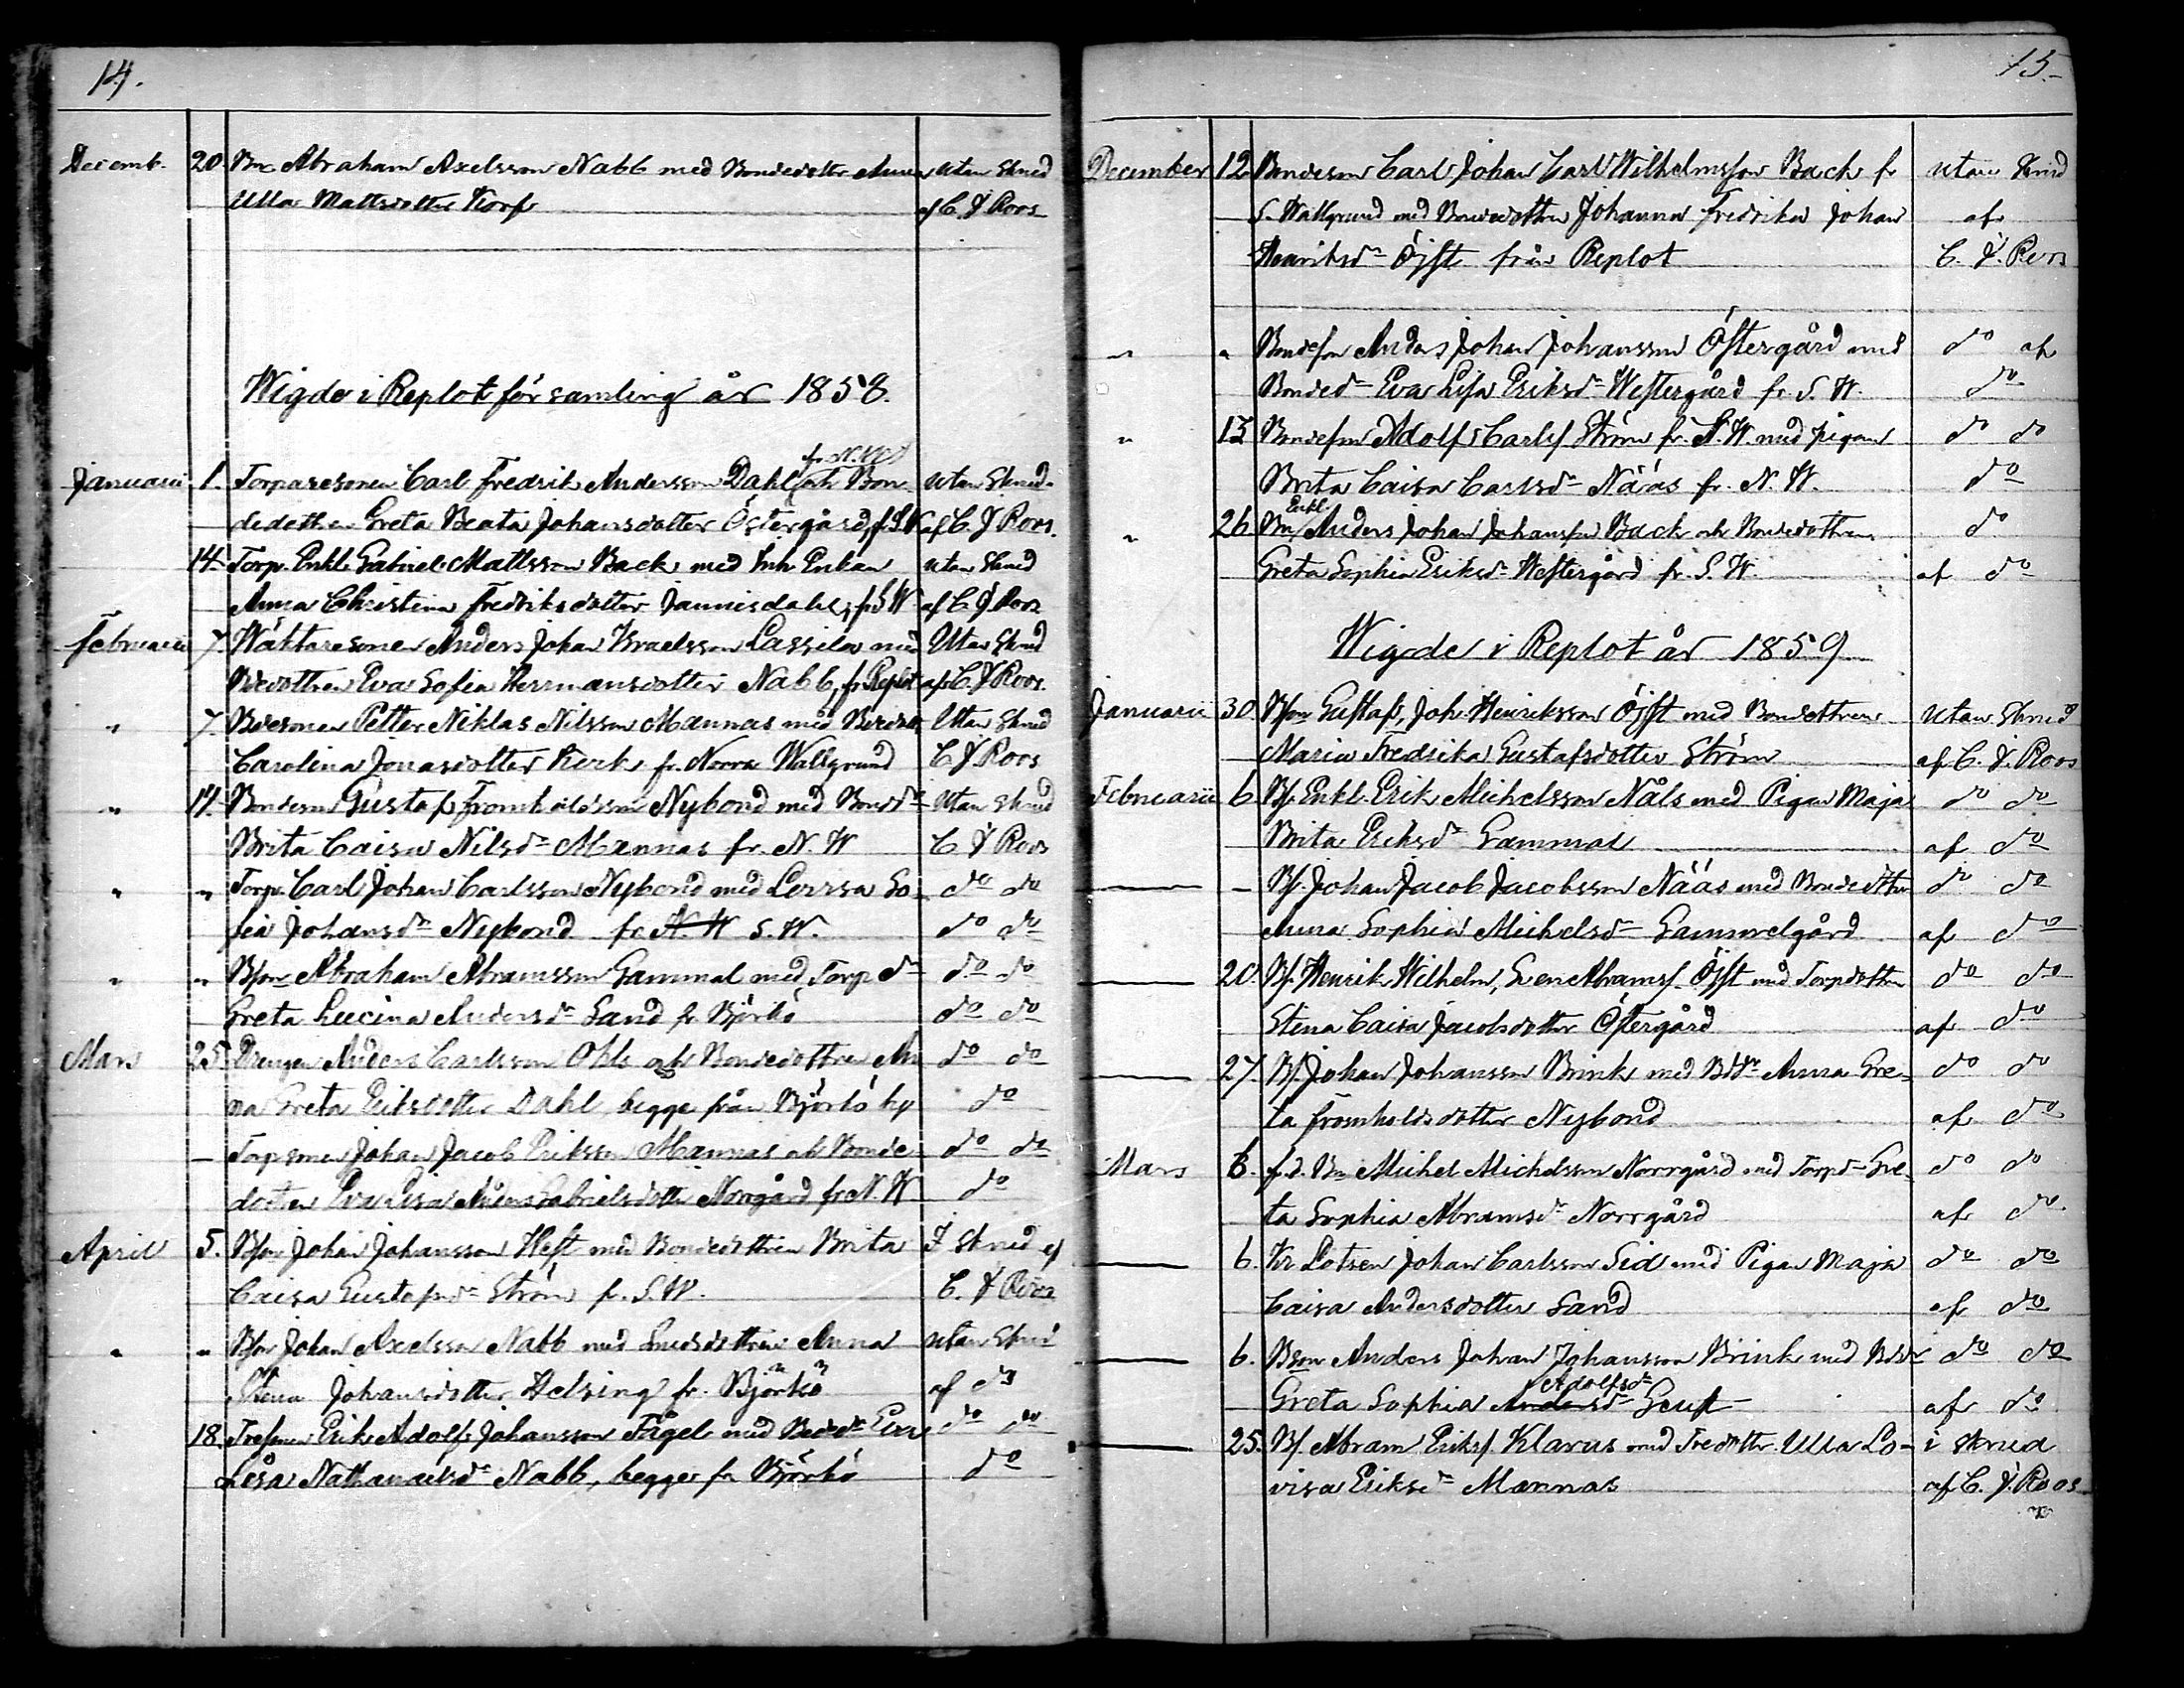 14.
Decemb. 20. Bn Abraham Axelsson Nabb med Bondedottr Anna utan Skrud
Ulla Mattsdotter Korp af C. J. Roos
Wigde i Replot församling år 1858.
fr N.W.
Januarii 1. Torparesonen Carl Fredrik Andersson Dahl och Bon- utan Skrud
dedottren Greta Beata Johansdotter Östergård, f. S.W. af C. J. Roos.
14. Torp. Enkl. Gabriel Mattsson Back med Inh. Enkan utan Skrud
Anna Christina Fredriksdotter Jannisdahl, fr S.W. af C. J. Roos
Februarii 7. Wäktaresonen Anders Johan Israelsson Lassila med Utan Skrud
Bdedottren Eva Sofia Hermansdotter Nabb, fr Replot af C. J. Roos.
" 7. Bdesonen Petter Niklas Nilsson Mannas med Bdedottr Utan Skrud
Carolina Jonasdotter Kerk fr. Norra Wallgrund C. J. Roos
" 14. Bondeson Gustaf Fromholdsson Nybond med Bonddr Utan Skrud
Brita Caisa Nilsdr Mannas fr. N. W C J Roos
" " Torp. Carl Johan Carlsson Nybond med Lovisa So- do do
fia Johansdr Nybond fr. N. W S. W. do do
" " Bson Abraham Abramsson Gammal med Torp dr do do
Greta Lucina Andersdr Sand fr Björkö do do
Mars 25. Drengen Anders Carlsson Ohls och Bondedottren An do do
na Greta Eriksdotter Dahl, begge från Björkö by do
— Torpsonen Johan Jacob Eriksson Mannas och Bonde- do do
dottren Eva Lisa Anders Gabrielsdottr Norrgård fr N. W. do
April 5. Bson Johan Johansson Heft med Bondedottren Brita I Skrud af
Caisa Gustafsdr Ström fr. S.W. C. J Roos
" " Bson Johan Axelsson Nabb med Smedsdottren Anna utan Skrud
Stena Johansdotter Helsing fr. Björkö af do
18. Erik Adolf Johansson Fågel med Bdedr Eva do do
Lisa Nathanaelsdr Nabb, begge fr Björkö do
15.
December 12. Bondeson Carl Johan Carl Wilhelmsson Back fr utan Skrud
S. Wallgrund med Bondedottren Johanna Fredrika Johan af
Henriksdr Öjst från Replot C. J. Roos
" " Bondeson Anders Johan Johansson Östergård med do af
Bondedr Eva Lisa Eriksdr Westergård fr. S. W. do
" 13 Bondeson Adolf Carlss. Ström fr. S. W. med pigan do do
Brita Caisa Carlsdr Nääs fr. N. W. do
Enkl.
" 26 Bn Anders Johan Johansson Back och Bondedottren do
Greta Sophia Eriksdr Westergård fr. S. W. af do
Wigde i Replot år 1859
Januarii 30 Bson Gustaf, Joh. Henriksson Öjst med Bondedottren utan Skrud
Maria Fredrika Gustafsdotter Ström af C. J. Roos
Februarii 6. Bs. Enkl. Erik Michelsson Nåls med Pigan Maja do do
Brita Eriksdr Gammal af do
— — Bs. Johan Jacob Jacobsson Nääs med Bondedottren do do
Anna Sophia Michelsdr Gammelgård af do
— 20. Bs. Henrik Wilhelm, Sven Abramss. Öjst med Torpdottren do do
Stena Caisa Jacobsdotter Östergård af do
— 27. Bs. Johan Johansson Brink med Bddr Anna Gre- do do
ta Fromholdsdotter Nybond af do
Mars 6. f.d. Bn Michel Michelsson Norrgård med Torpdr Gre- do do
ta Sophia Abramsdr Norrgård af do
— 6. Kr Lotsen Johan Carlsson Sid med Pigan Maja do do
Caisa Andersdotter Sand af do
— 6. Bson Anders Johan Johansson Brink med Bddr do do
Adolfsdr
Greta Sophia Andersdr Geust af do
— 25. Bs. Abram Erikss. Klavus med Tredottr. Ulla Lo- i skrud
visa Eriksdr Mannas af C. J. Roos